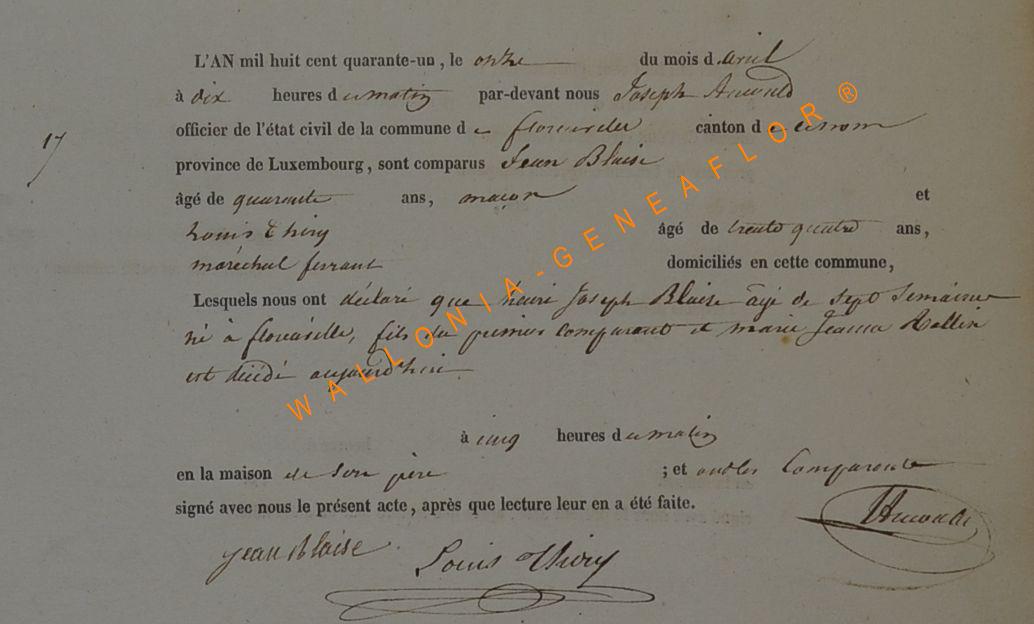 L'AN mil huit cent quarante-un, le onze du mois d'avril
à dix heures du matin par-devant nous Joseph Arnould
officier de l'état civil de la commune de canton de
17
province de Luxembourg, sont comparus Jean Blaise
âgé de quarante ans, maçon et
Louis Thiry âgé de trente quatre ans,
maréchal ferrant domiciliés en cette commune,
Lesquels nous ont déclaré que henri Joseph Blaise âgé de sept Semaines
né à floréville, fils du premier comparant et marie Jeanne
est décédé aujourd'hui
à cinq heures du matin
en la maison de son père ; et ont les Comparants
signé avec nous le présent acte, après que lecture leur en a été faite.
Jean Blaise Louis Thiry JArnould
WALLONIA-GENEAFLOR®